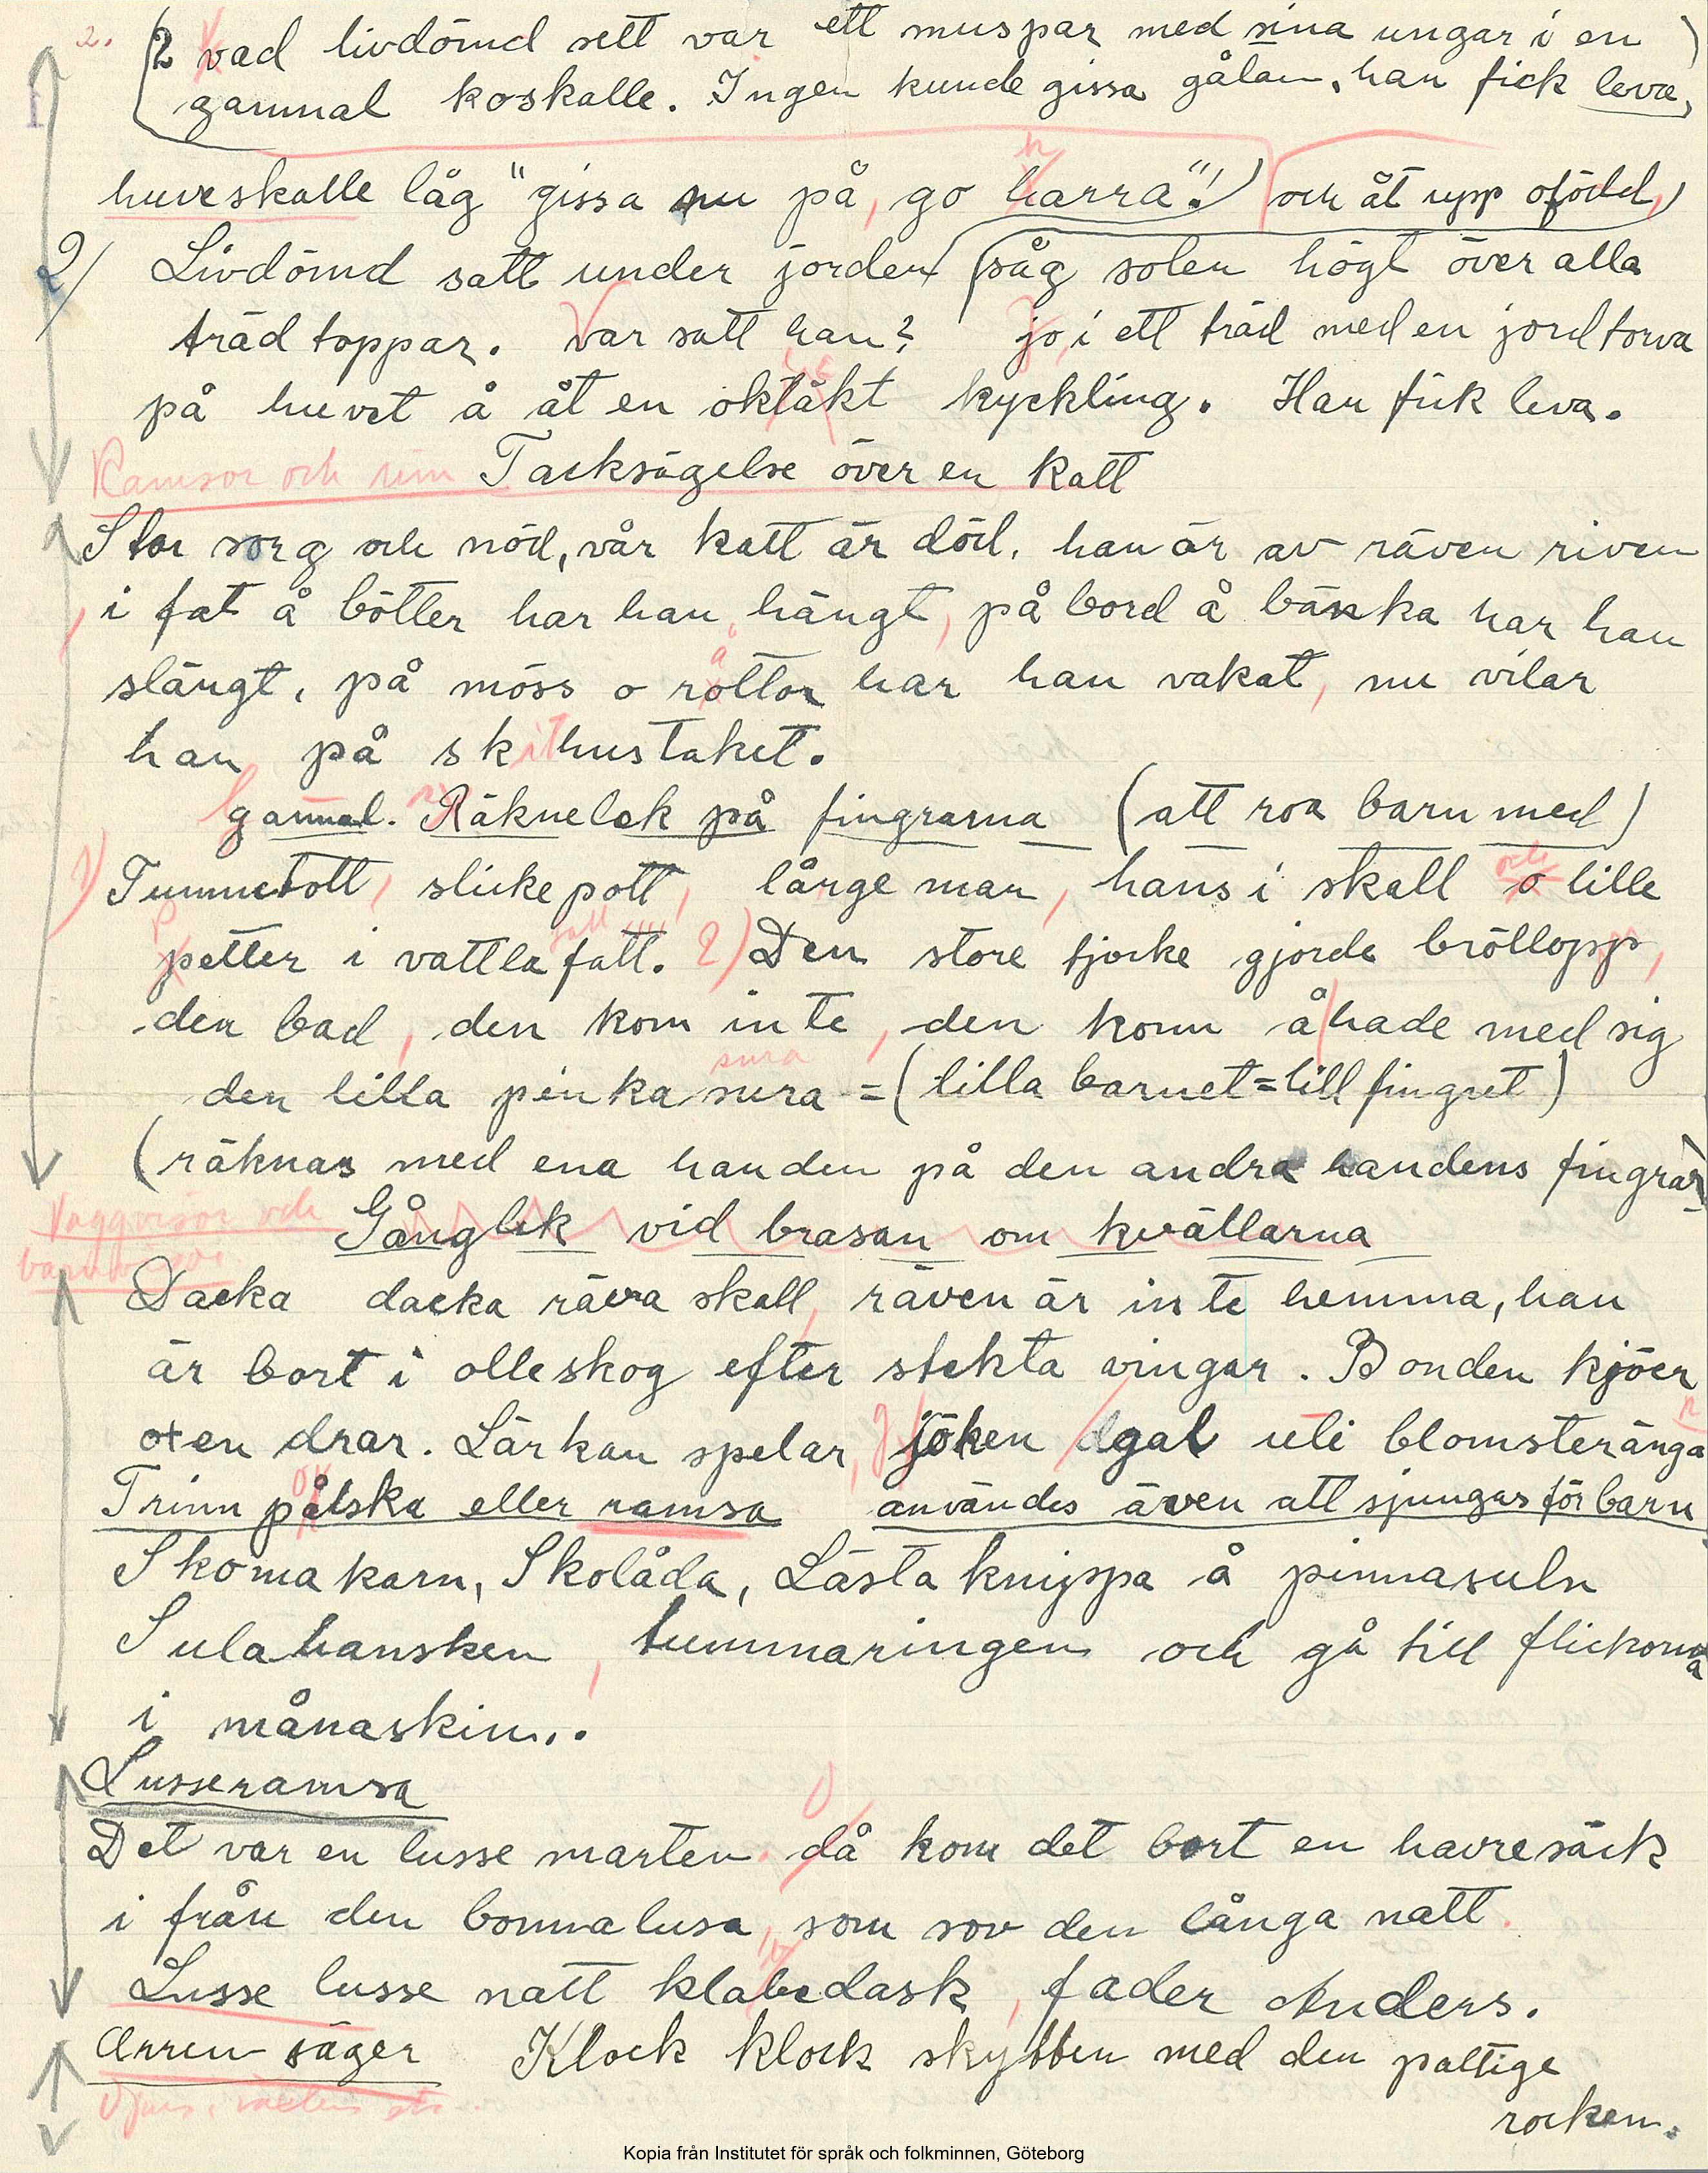 2. (2 vad livdömd sett var ett muspar med sina ungar i en
gammal koskalle. Ingen kunde gissa gåtan, han fick leva,)
huveskalle låg "gissa nu på, go harra"!) och åt upp ofödd,)
2/ Livdömd satt under jorden (såg solen högt över alla
träd toppar. Var satt han? jo, i ett träd med en jordtorva
på huvet å åt en okläkt kyckling. Han fick leva.
Ramsor och rim Tacksägelse över en Katt
Stor sorg och nöd, vår katt är död, han är av räven riven
i fat å bötter har han hängt, på bord å bänka har han
slängt, på möss o råttor har han vakat, nu vilar
han på skithustaket.
gammal. Räknelek på fingrarna (att roa barn med)
1) Tummetott, slickepott, långe man, hans i skall och lille
petter i vattla fatt. 2) Den store tjocke gjorde bröllopp,
den bad, den kom inte, den kom å hade med sig
sura
den lilla pinka sura = (lilla barnet = lillfingret)
(räknas med ena handen på den andra handens fingrar)
Vaggvisor och
Gånglek vid brasan om kvällarna
Dacka dacka räva skall, räven är inte hemma, han
är bort i olleskog efter stekta vingar. Bonden kjöer
oxen drar. Lärkan spelar, jöken gal uti blomsteränga
Trinn pålska eller ramsa användes även att sjungas för barn
Skomakarn, Skolåda, Lästa knippa å pinnasuln
Sulahansken, tummaringen och gå till flickorna
i månaskin..
Lusseramsa
Det var en lusse marten då kom det bort en havresäck
i från den bonnalusa, som sov den långa natt.
Lusse lusse natt klabedask, fader Anders.
Orren säger Klock klock skytten med den paltige
rocken.
Kopia från Institutet för språk och folkminnen, Göteborg